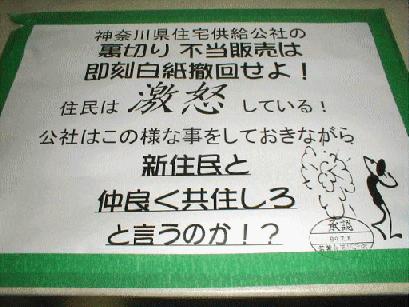 神奈川県住宅供給公社の
裏切り 不当販売は
即刻白紙撤回せよ！
住民は 激怒 している！
公社はこの様な事をしておきながら
新住民と
仲良く共住しろ
と言うのか！？
承認